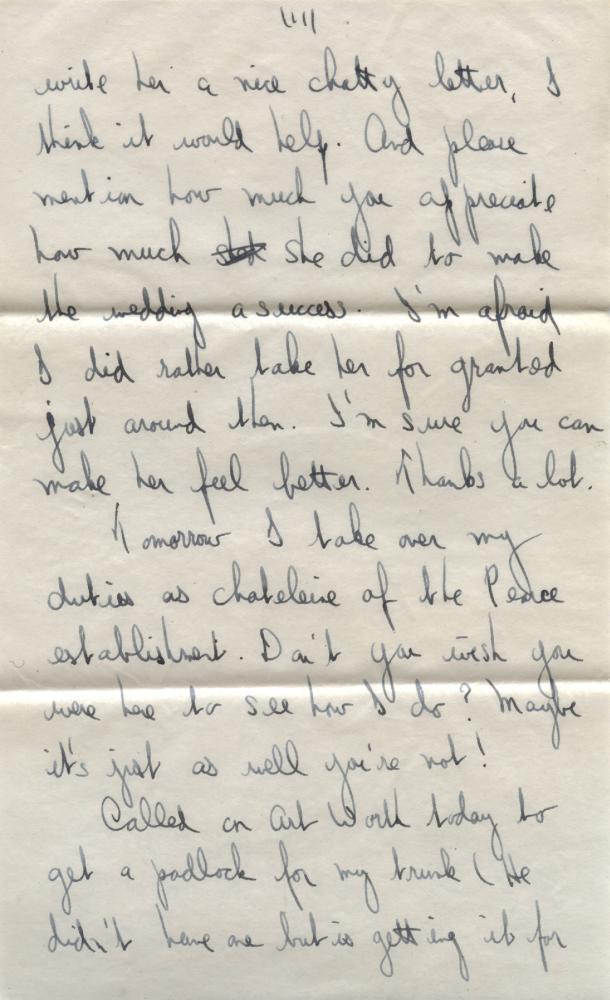 write her a nice chatty letter, I
think it would help. And please
mention how much you appreciate
how much she did to make
the wedding a success. I'm afraid
I did rather take her for granted
just around then. I'm sure you can
make her feel better. Thanks a lot.
Tomorrow I take over my
duties as chateleine of the Pence
establishment. Don't you wish you
were here to see how I do? Maybe
it's just as well you're not!
Called on Art Work today to
get a padlock for my trunk (He
didn't have one but is getting it for